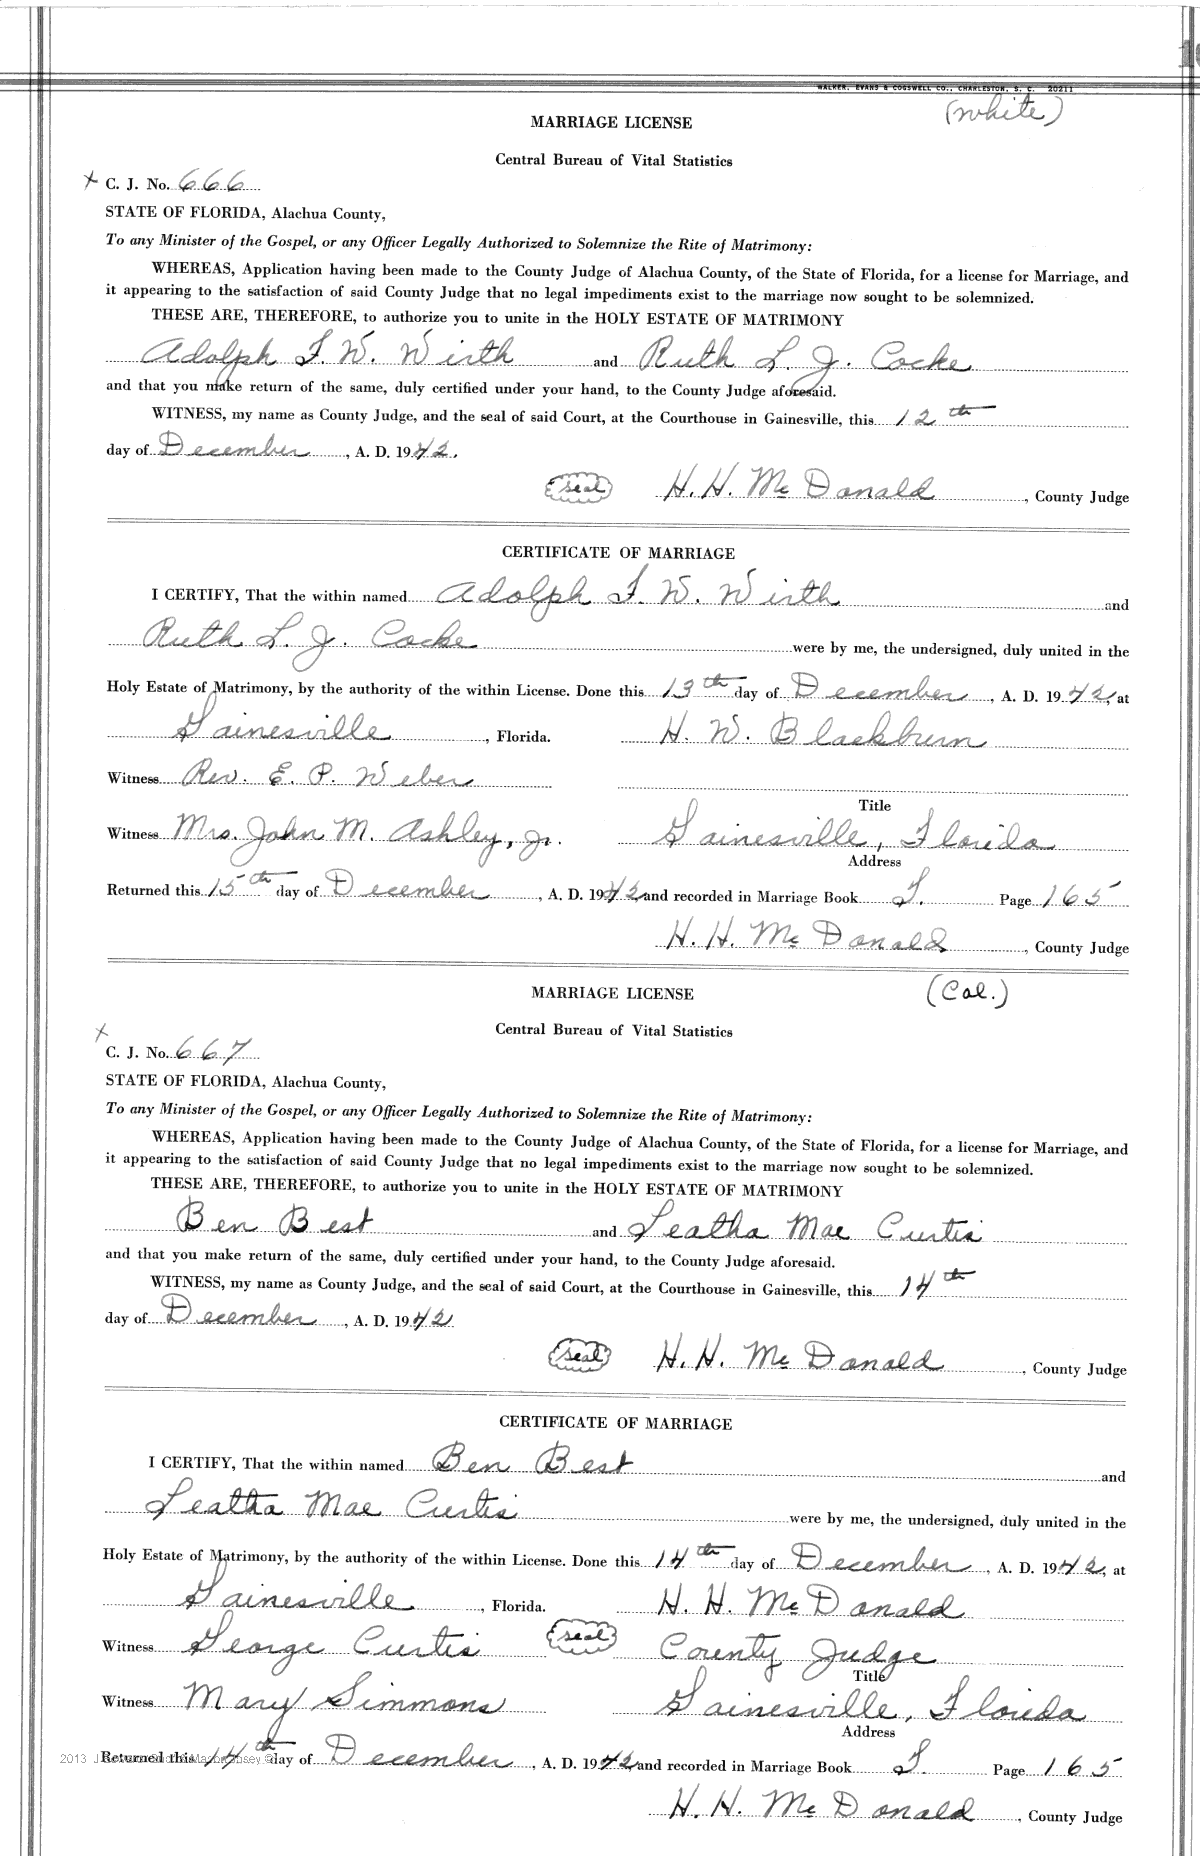 WALKER, EVANS & COGSWELL CO., CHARLESTON, S. C. 20211
(White)
MARRIAGE LICENSE
Central Bureau of Vital Statistics
x C. J. No. 666
STATE OF FLORIDA, Alachua County,
To any Minister of the Gospel, or any Officer Legally Authorized to Solemnize the Rite of Matrimony:
WHEREAS, Application having been made to the County Judge of Alachua County, of the State of Florida, for a license for Marriage, and
it appearing to the satisfaction of said County Judge that no legal impediments exist to the marriage now sought to be solemnized.
THESE ARE, THEREFORE, to authorize you to unite in the HOLY ESTATE OF MATRIMONY
Adolph F. W. Wirth and Ruth L. J. Cocke
and that you make return of the same, duly certified under your hand, to the County Judge aforesaid.
WITNESS, my name as County Judge, and the seal of said Court, at the Courthouse in Gainesville, this 12th
day of December, A. D. 1942.
Seal H. H. McDonald, County Judge
CERTIFICATE OF MARRIAGE
I CERTIFY, That the within named Adolph F. W. Wirth and
Ruth L. J. Cocke were by me, the undersigned, duly united in the
Holy Estate of Matrimony, by the authority of the within License. Done this 13th day of December, A. D. 1942, at
Gainesville, Florida. H. W. Blackburn
Witness Rev. E. P. Weber
Title
Witness Mrs. John M. Ashley, Jr. Gainesville, Florida
Address
Returned this 15th day of December, A. D. 1942 and recorded in Marriage Book Page 165
H. H. McDonald, County Judge
MARRIAGE LICENSE (Col.)
Central Bureau of Vital Statistics
x
C. J. No. 667
STATE OF FLORIDA, Alachua County,
To any Minister of the Gospel, or any Officer Legally Authorized to Solemnize the Rite of Matrimony:
WHEREAS, Application having been made to the County Judge of Alachua County, of the State of Florida, for a license for Marriage, and
it appearing to the satisfaction of said County Judge that no legal impediments exist to the marriage now sought to be solemnized.
THESE ARE, THEREFORE, to authorize you to unite in the HOLY ESTATE OF MATRIMONY
Ben Best and Leatha Mae Curtis
and that you make return of the same, duly certified under your hand, to the County Judge aforesaid.
WITNESS, my name as County Judge, and the seal of said Court, at the Courthouse in Gainesville, this 14th
day of December, A. D. 1942
Seal H. H. McDonald, County Judge
CERTIFICATE OF MARRIAGE
I CERTIFY, That the within named Ben Best and
Leatha Mae Curtis were by me, the undersigned, duly united in the
Holy Estate of Matrimony, by the authority of the within License. Done this 14th day of December, A. D. 1942, at
Gainesville, Florida. H. H. McDonald
Witness George Curtis Seal County Judge
Title
Witness Mary Simmons Gainesville, Florida
Address
Returned this 14th day of December, A. D. 1942 and recorded in Marriage Book Page 165
2013
H. H. McDonald, County Judge